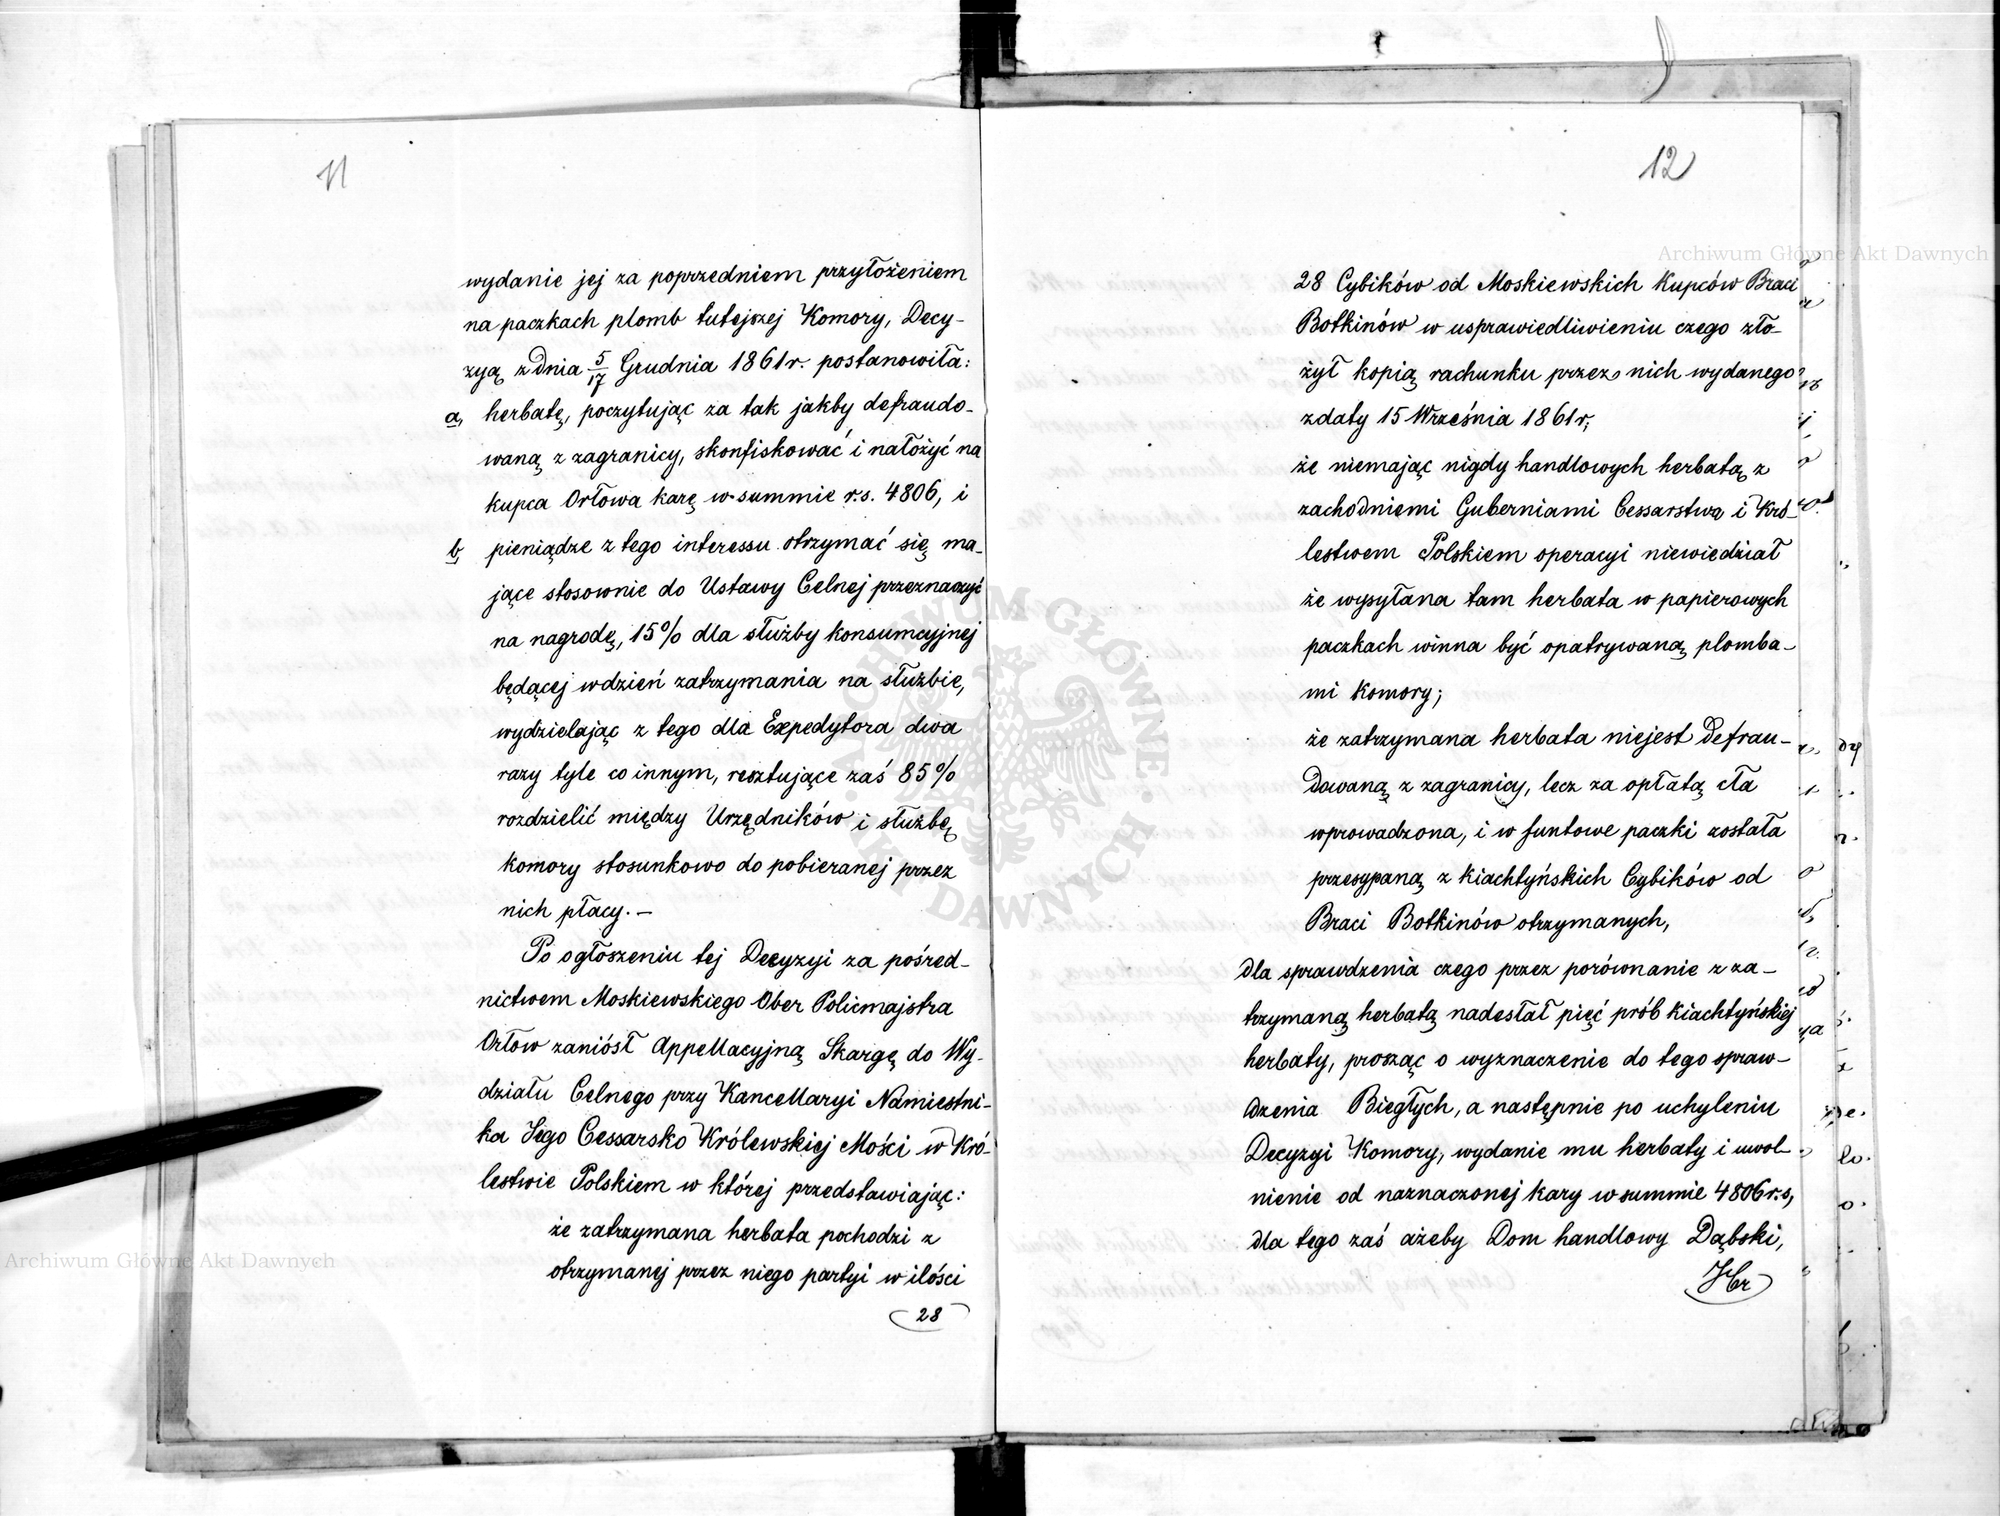 11
wydanie jej za poprzedniem przyłożeniem
na paczkach plomb tutejszej Komory, Decy-
zyą z dnia 5/17 Grudnia 1861 r. postanowiła:
a, herbatę, poczytując za tak jakby defraudo-
waną z zagranicy, skonfiskować i nałożyć na
kupca Orłowa karę w summie r.s. 4806, i
b, pieniądze z tego interessu otrzymać się ma-
jące stosownie do Ustawy Celnej przeznaczyć
na nagrodę, 15% dla służby konsumcyjnej
będącej w dzień zatrzymania na służbie,
wydzielając z tego dla Expedytora dwa
razy tyle co innym, resztujące zaś 85%
rozdzielić między Urzędników i służbę
komory stosunkowo do pobieranej przez
nich płacy. —
Po ogłoszeniu tej Decyzyi za pośred-
nictwem Moskiewskiego Ober Policmajstra
Orłow zaniósł Appellacyjną Skargę do Wy-
działu Celnego przy Kancellaryi Namiestni-
ka Jego Cessarsko Królewskiej Mości w Kró-
lestwie Polskiem w której przedstawiając:
że zatrzymana herbata pochodzi z
otrzymanej przez niego partyi w ilości
28
12
28 Cybików od Moskiewskich Kupców Braci
Botkinów w usprawiedliwieniu czego zło-
żył kopią rachunku przez nich wydanego
z daty 15 Września 1861 r;
że niemając nigdy handlowych herbatą z
zachodniemi Guberniami Cessarstwa i Kró-
lestwem Polskiem operacyi niewiedział
że wysyłana tam herbata w papierowych
paczkach winna być opatrywaną plomba-
mi Komory;
że zatrzymana herbata niejest defrau-
dowaną z zagranicy, lecz za opłatą cła
wprowadzona, i w funtowe paczki została
przesypaną z kiachtyńskich Cybików od
Braci Botkinów otrzymanych,
dla sprawdzenia czego przez porównanie z za-
trzymaną herbatą nadesłał pięć prób Kiachtyńskiej
herbaty, prosząc o wyznaczenie do tego spraw-
dzenia Biegłych, a następnie po uchyleniu
Decyzyi Komory, wydanie mu herbaty i uwol-
nienie od naznaczonej kary w summie 4806 r.s,
dla tego zaś ażeby Dom handlowy Dąbski,
Archiwum Główne Akt Dawnych
Archiwum Główne Akt Dawnych
ARCHIWUM GŁÓWNE AKT DAWNYCH